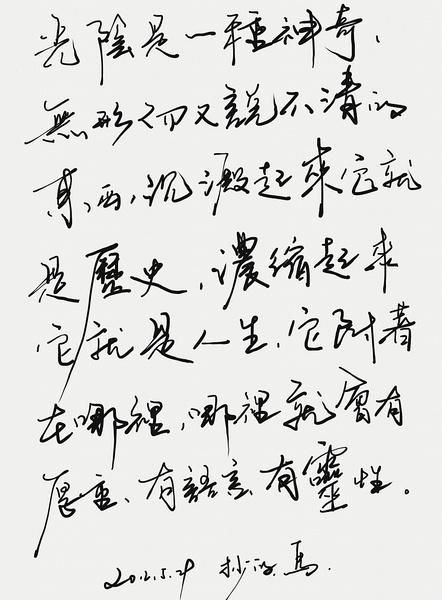 光陰是一種神奇、
無形而又說不清的
東西，沉澱起來它就
是歷史，濃縮起來
它就是人生，它附著
在哪裡，哪裡就會有
厚重、有語言、有靈性。
抄的